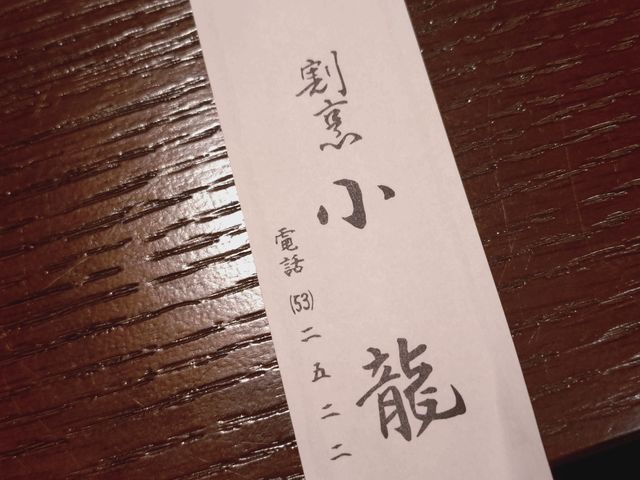 割烹 小龍
電話 (53) 二五二二